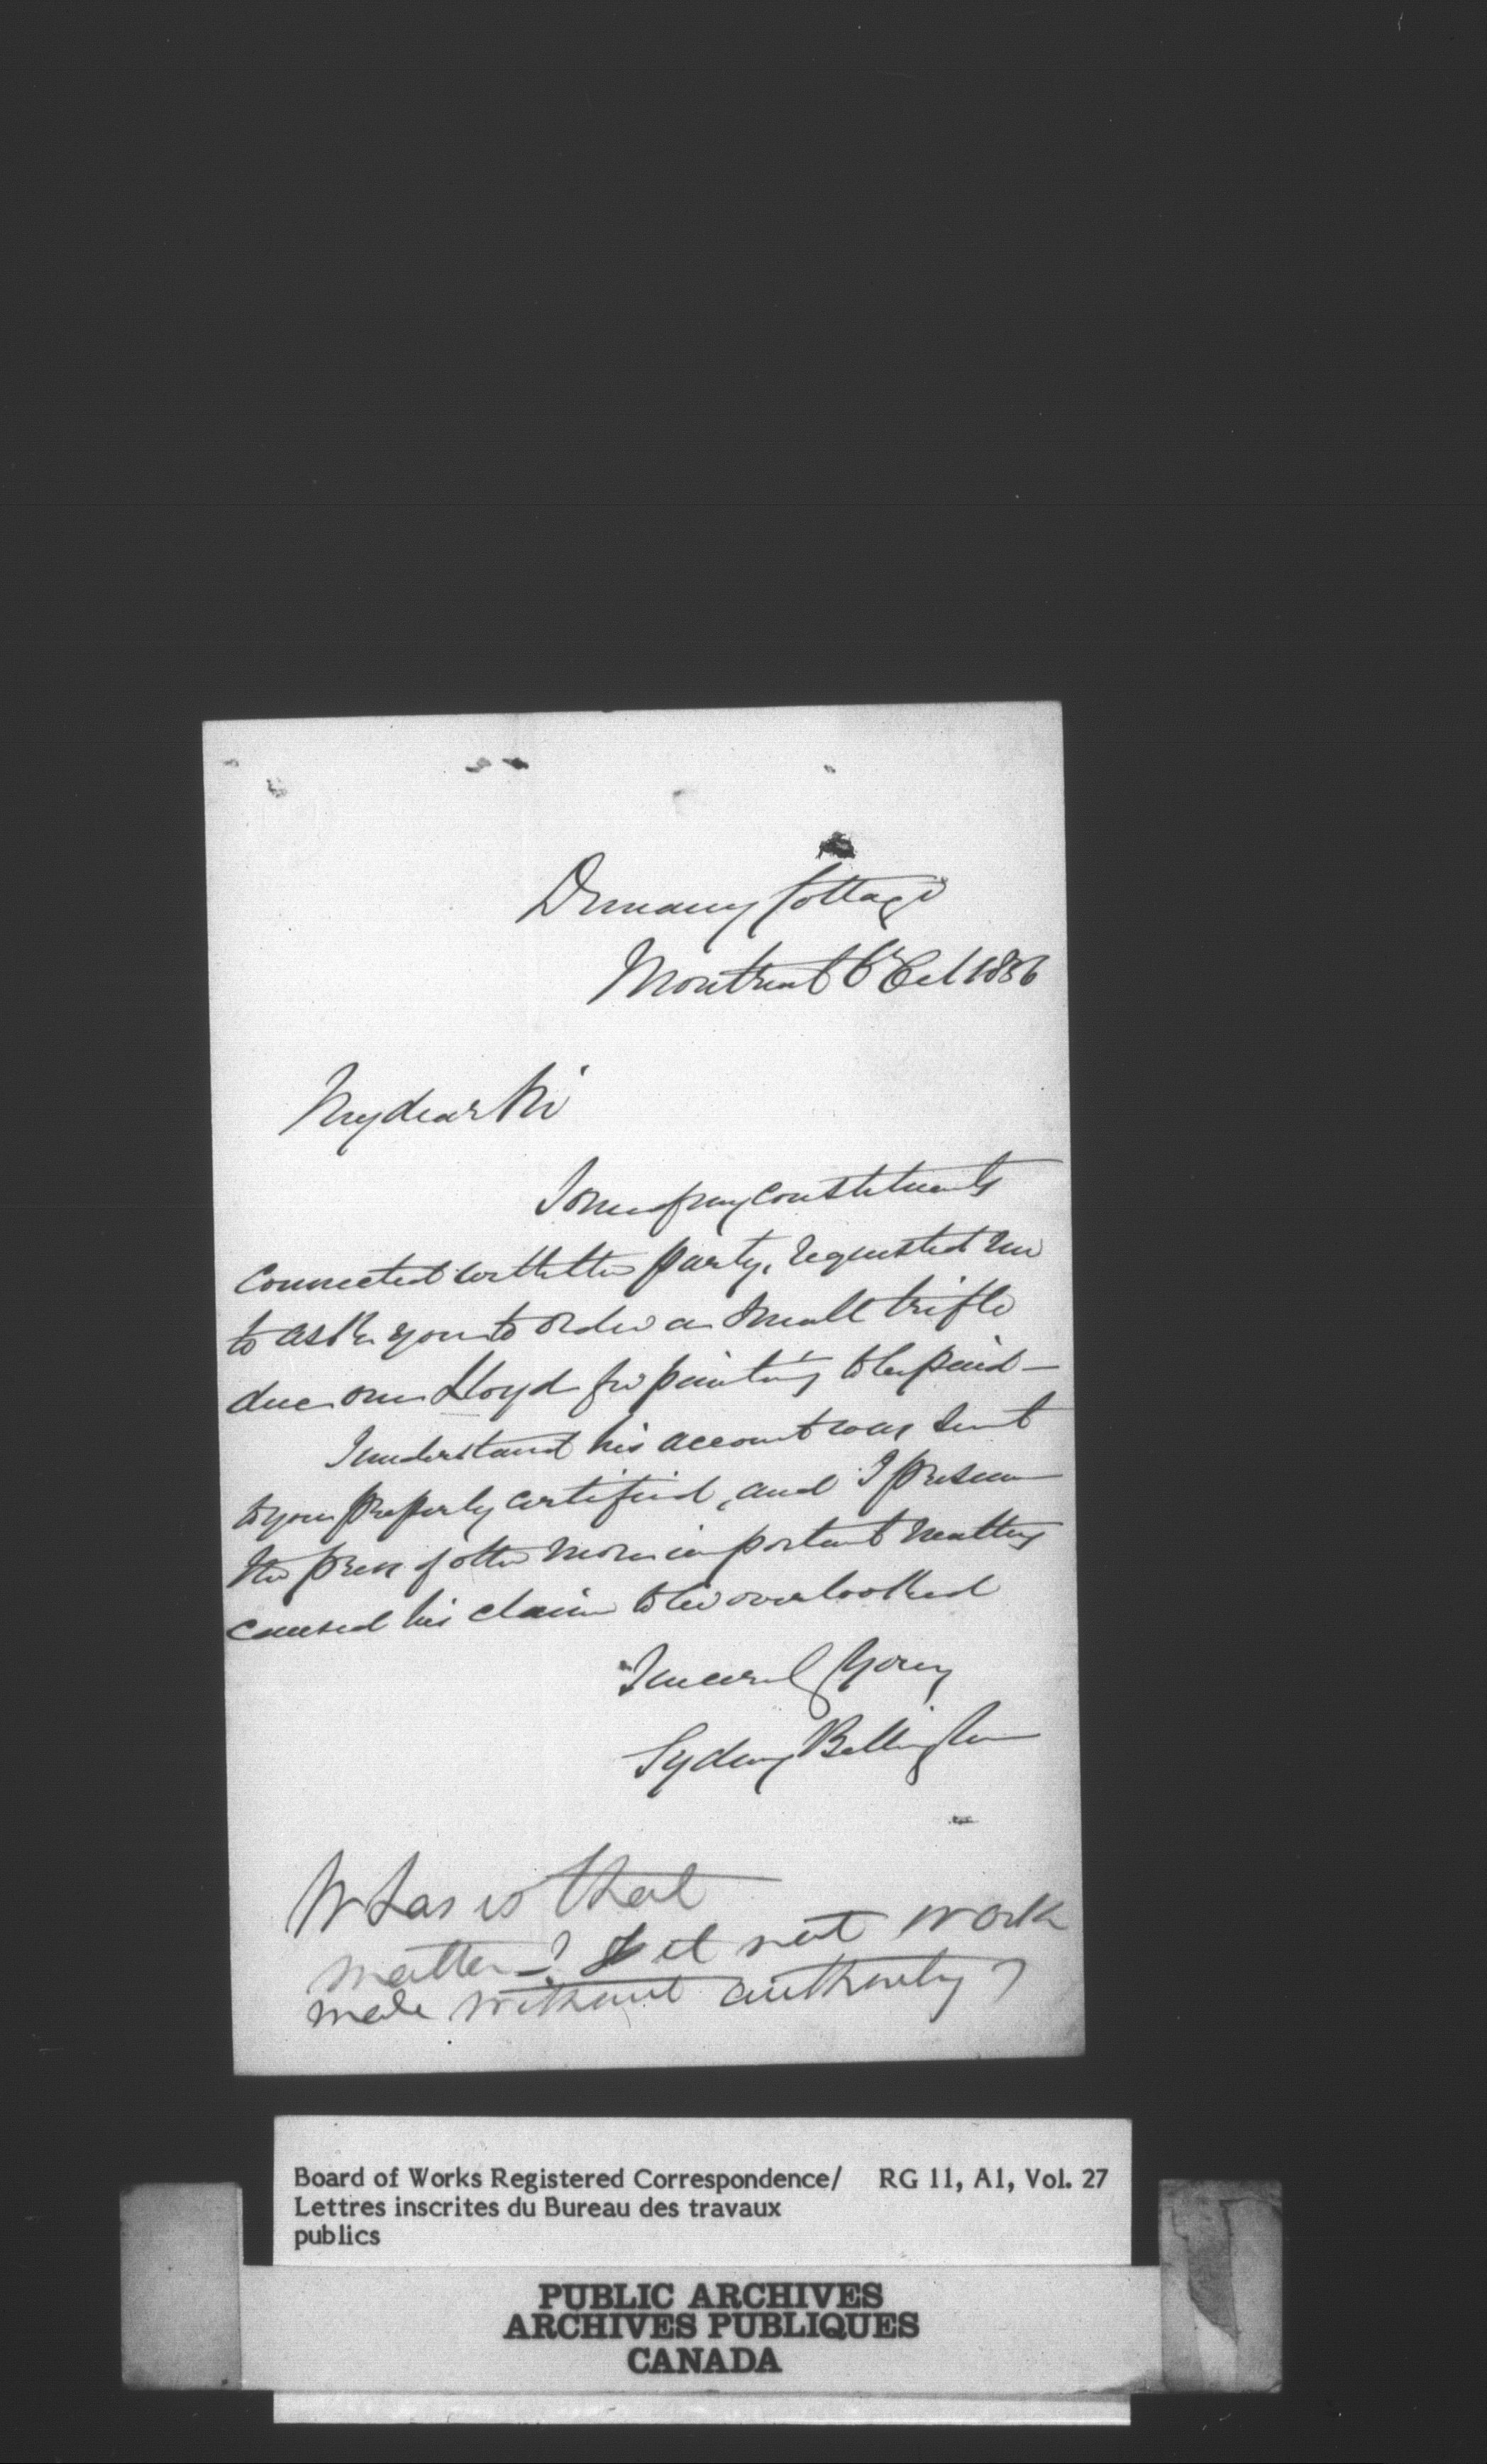 Drumany Cottage
Montreal 6 Oct 1856
My dear Sir
Some of my constituents
connected with the party, requested me
to ask you to order a small trifle
due one Lloyd for painting to be paid —
I understand his account was sent
to you properly certified, and I presume
the press of other more important matters
caused his claim to be overlooked
Sincerely Yours
Sydney Bellingham
What is that
matter? Is it not work
made without authority?
Board of Works Registered Correspondence/ RG 11, A1, Vol. 27
Lettres inscrites du Bureau des travaux
publics
PUBLIC ARCHIVES
ARCHIVES PUBLIQUES
CANADA